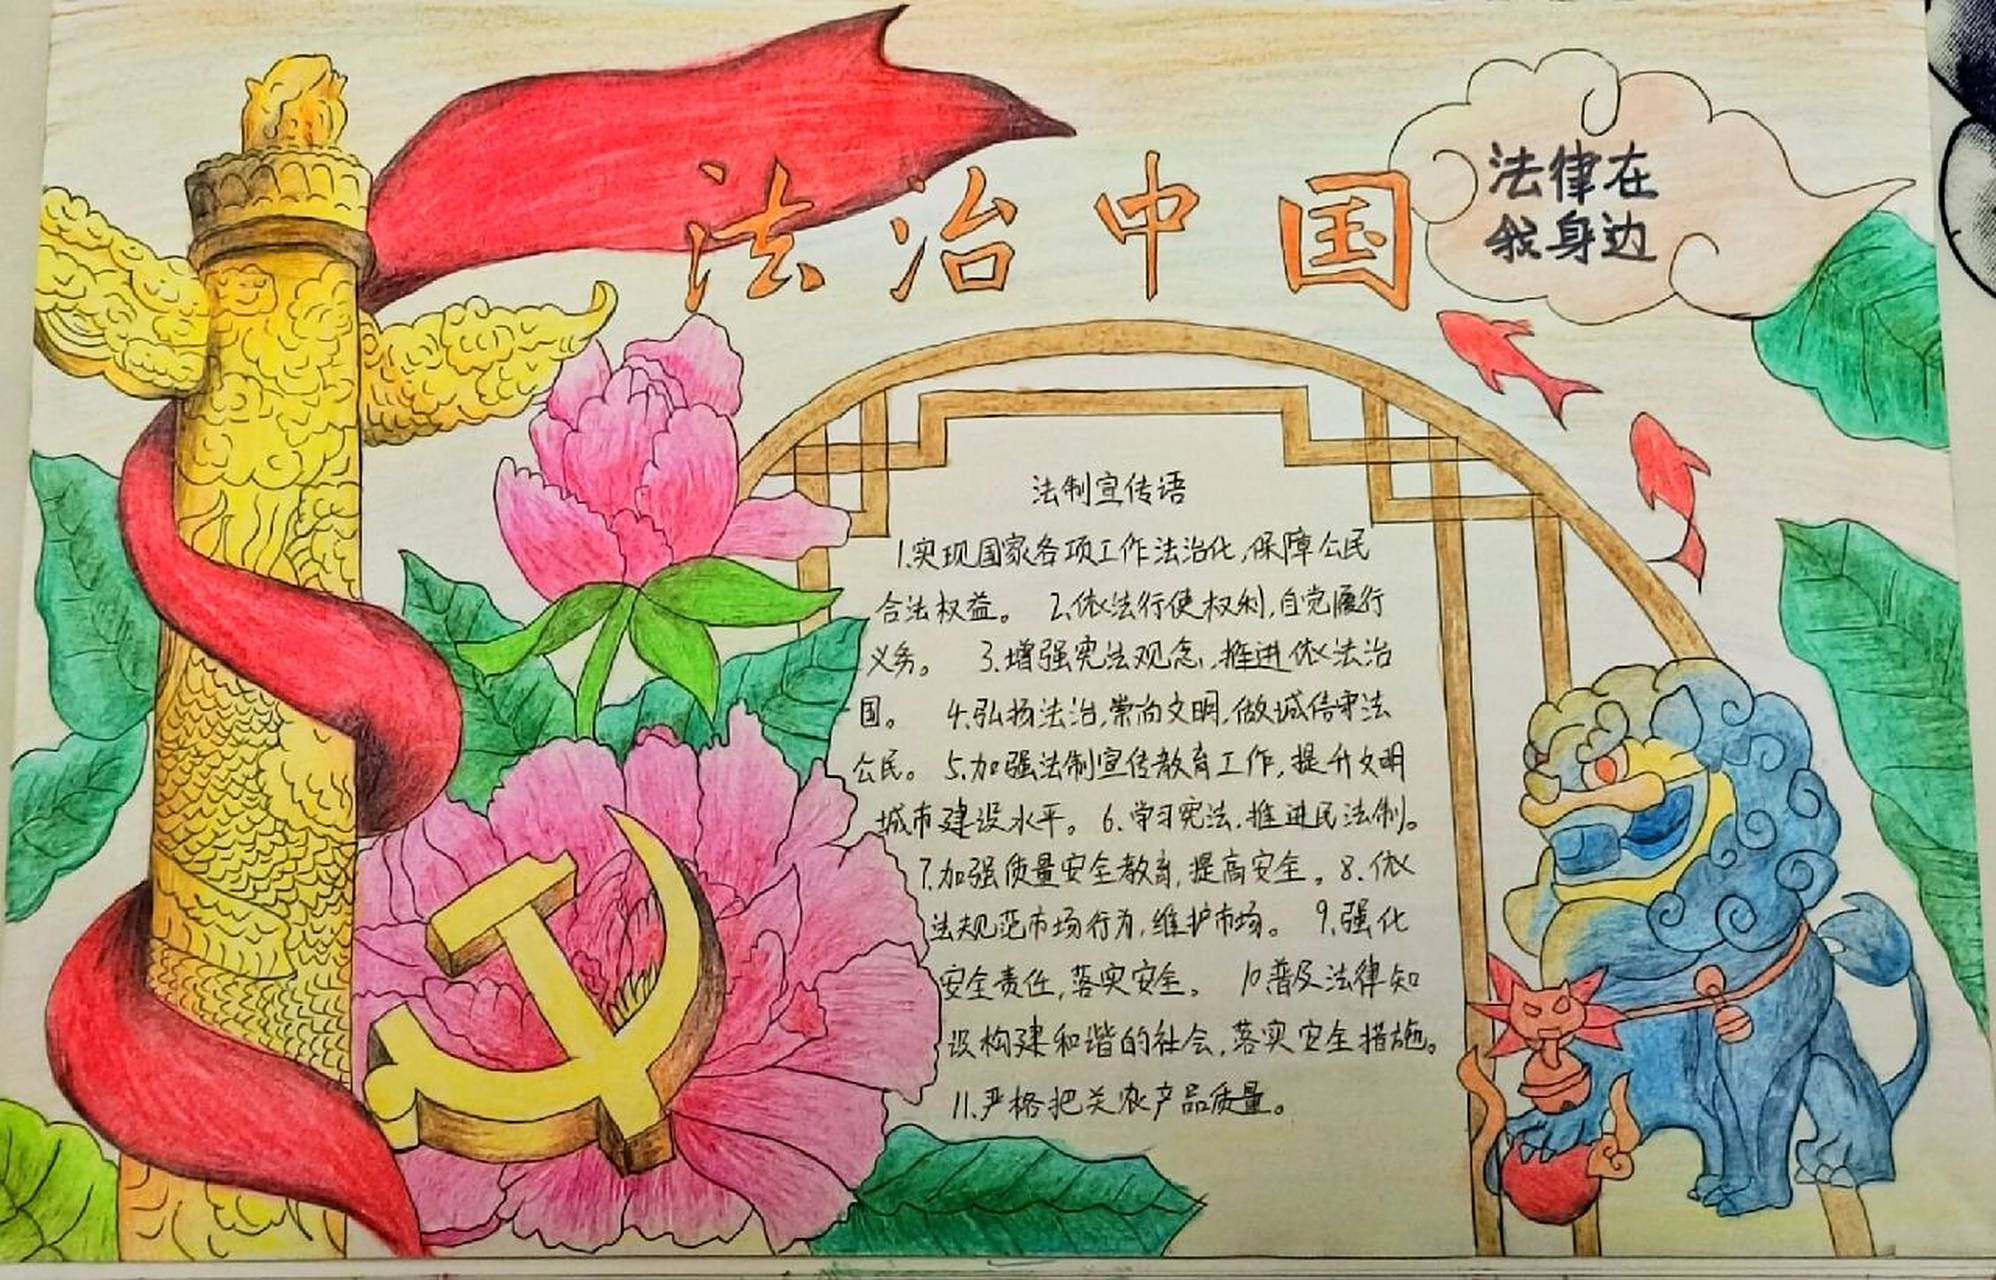 法治中国
法律在
我身边
法制宣传语
1.实现国家各项工作法治化,保障公民
合法权益。 2.依法行使权利,自觉履行
义务。 3.增强宪法观念,推进依法治
国。 4.弘扬法治,崇尚文明,做诚信守法
公民。 5.加强法制宣传教育工作,提升文明
城市建设水平。 6.学习宪法,推进民法制。
7.加强质量安全教育,提高安全。 8.依
法规范市场行为,维护市场。 9.强化
安全责任,落实安全。 10普及法律知
识构建和谐的社会,落实安全措施。
11.严格把关农产品质量。